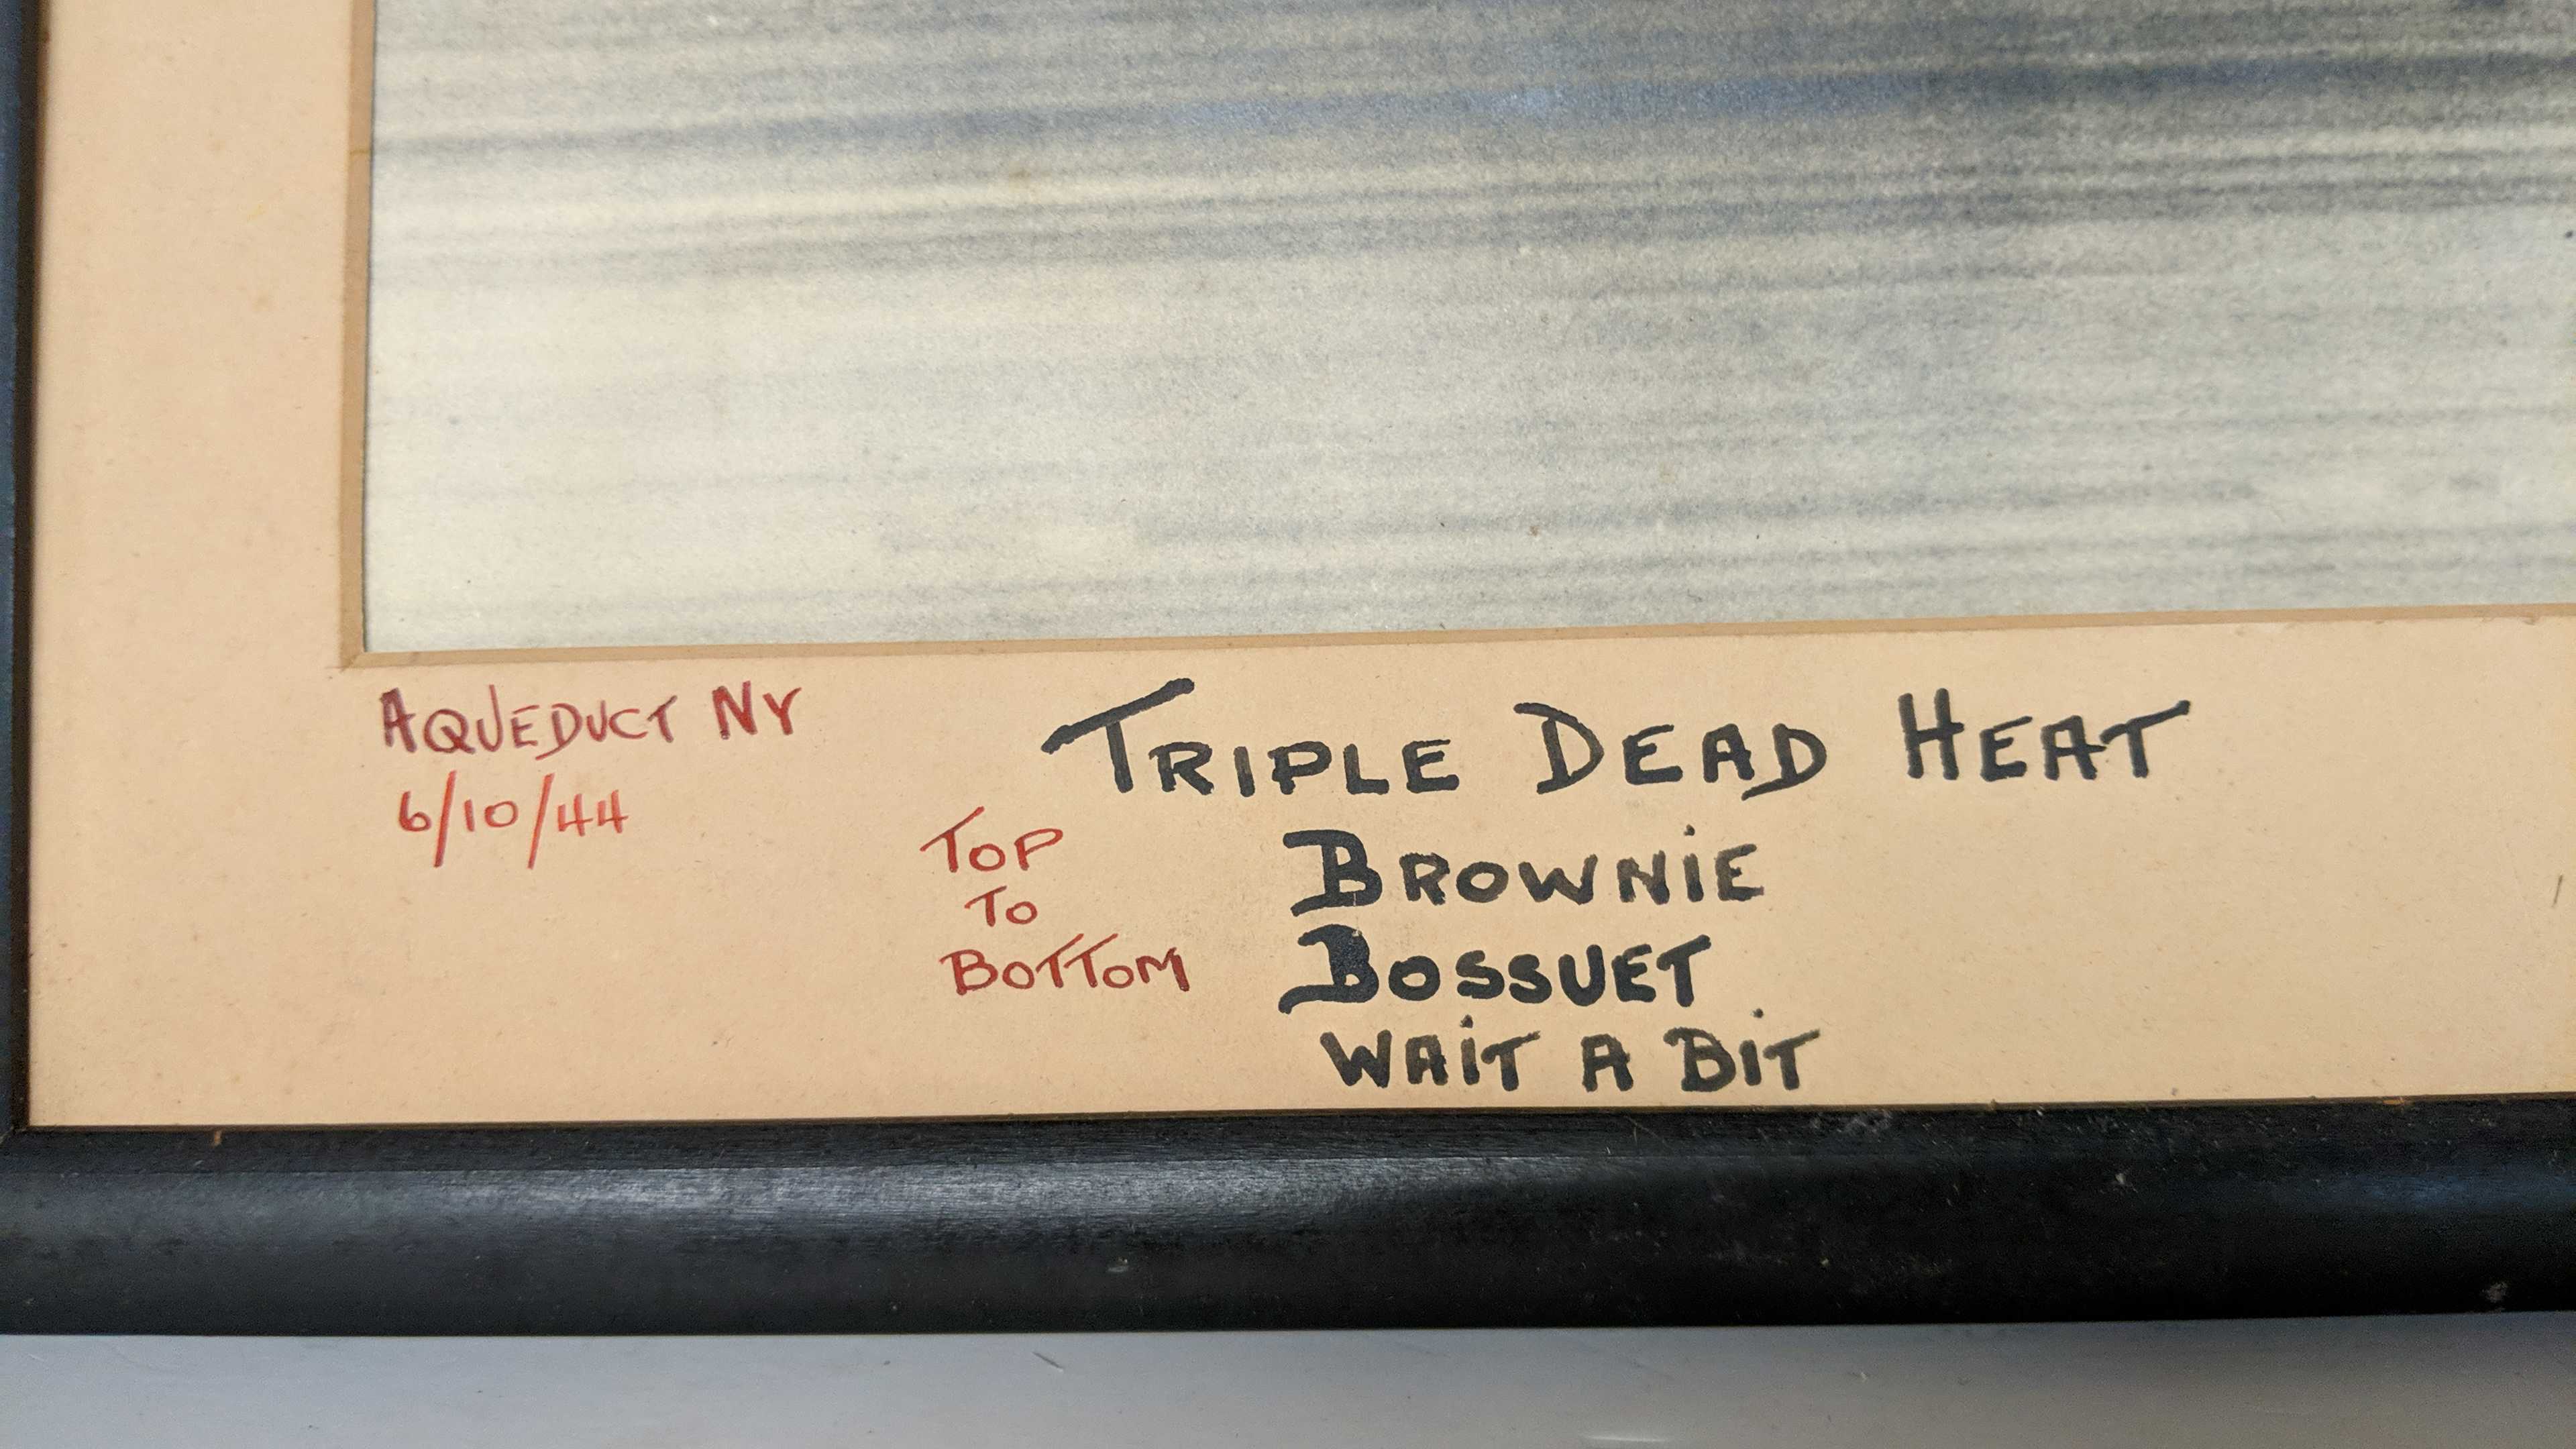 AQUEDUCT NY
6/10/44
TRIPLE DEAD HEAT
TOP
TO
BOTTOM
BROWNIE
BOSSUET
WAiT A BiT